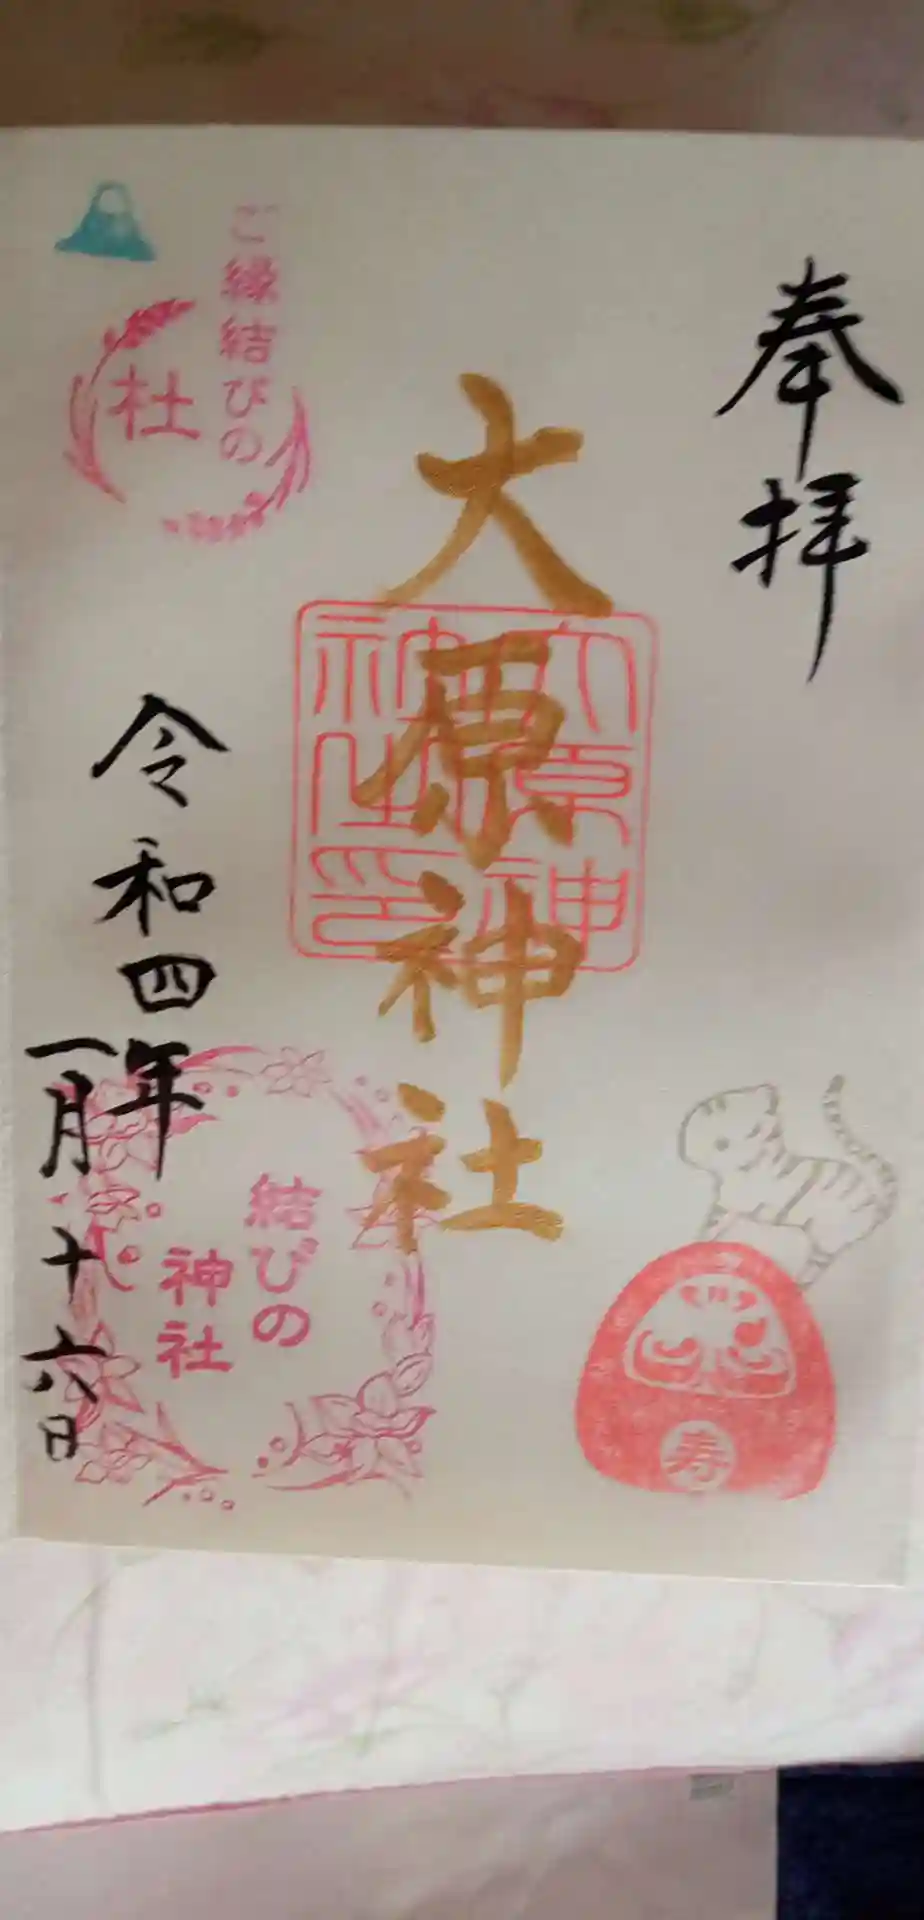 奉拝
大原神社
大原神社之印
ご縁結びの
杜
令和四年
一月十六日
結びの
神社
寿